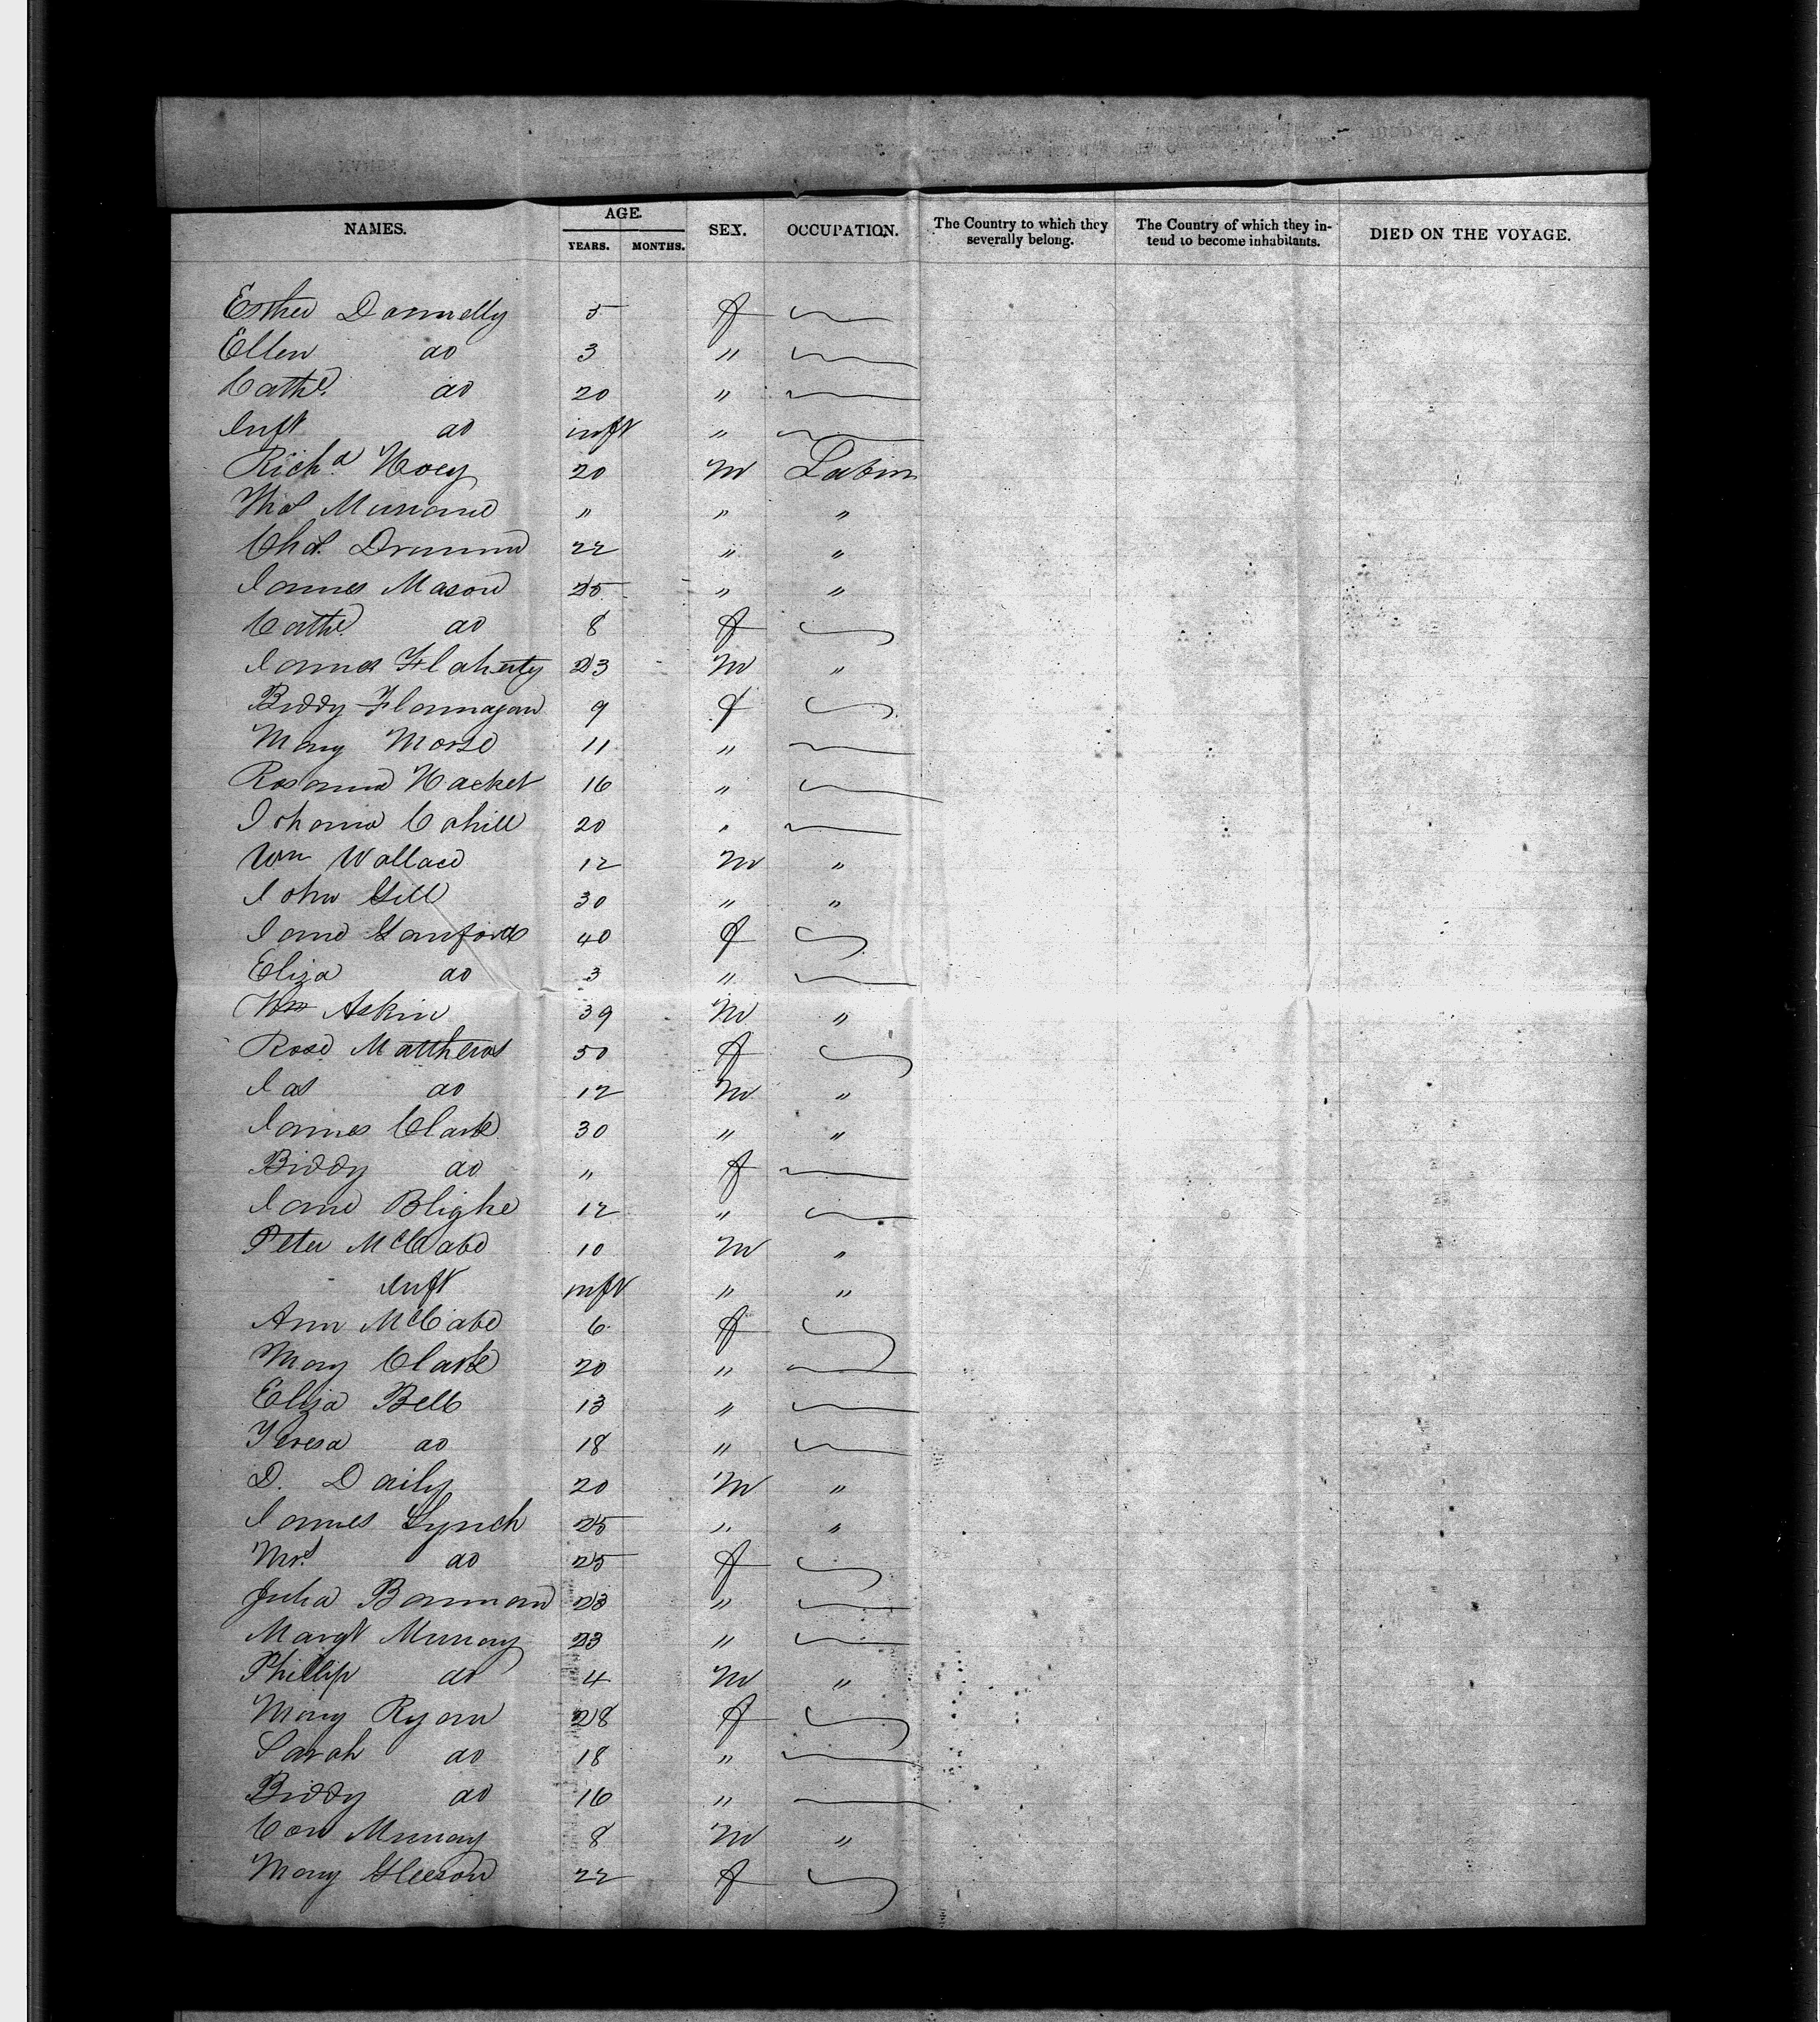 NAMES. AGE. YEARS. MONTHS. SEX. OCCUPATION. The Country to which they severally belong. The Country of which they intend to become inhabitants. DIED ON THE VOYAGE.
Esther Donnelly 5 f
Ellen do 3 "
Cathe. do 20 "
Inft do inft "
Richd. Hoey 20 M Labin
Thos Murnane " " "
Chas. Drummd 22 " "
James Mason 25 " "
Cathe. do 8 f
James Flaherty 23 M "
Biddy Flannagan 9 f
Mary Morse 11 "
Rosanna Hacket 16 "
Johanna Cahill 20 "
Wm Wallace 12 M "
John Gill 30 " "
Jane Hanford 40 f
Eliza do 3 "
Wm Askin 39 M "
Rose Matthews 50 f
Jas do 12 M "
James Clark 30 " "
Biddy do " f
Jane Blighe 12 "
Peter McCabe 10 M "
Inft inft " "
Ann McCabe 6 f
Mary Clark 20 "
Eliza Bell 13 "
Teresa do 18 "
D. Daily 20 M "
James Lynch 25 " "
Mrs. do 25 f
Julia Bannnan 23 "
Margt Murray 23 "
Phillip do 4 M "
Mary Ryan 28 f
Sarah do 18 "
Biddy do 16 "
Con Murray 8 M "
Mary Gleeson 22 f